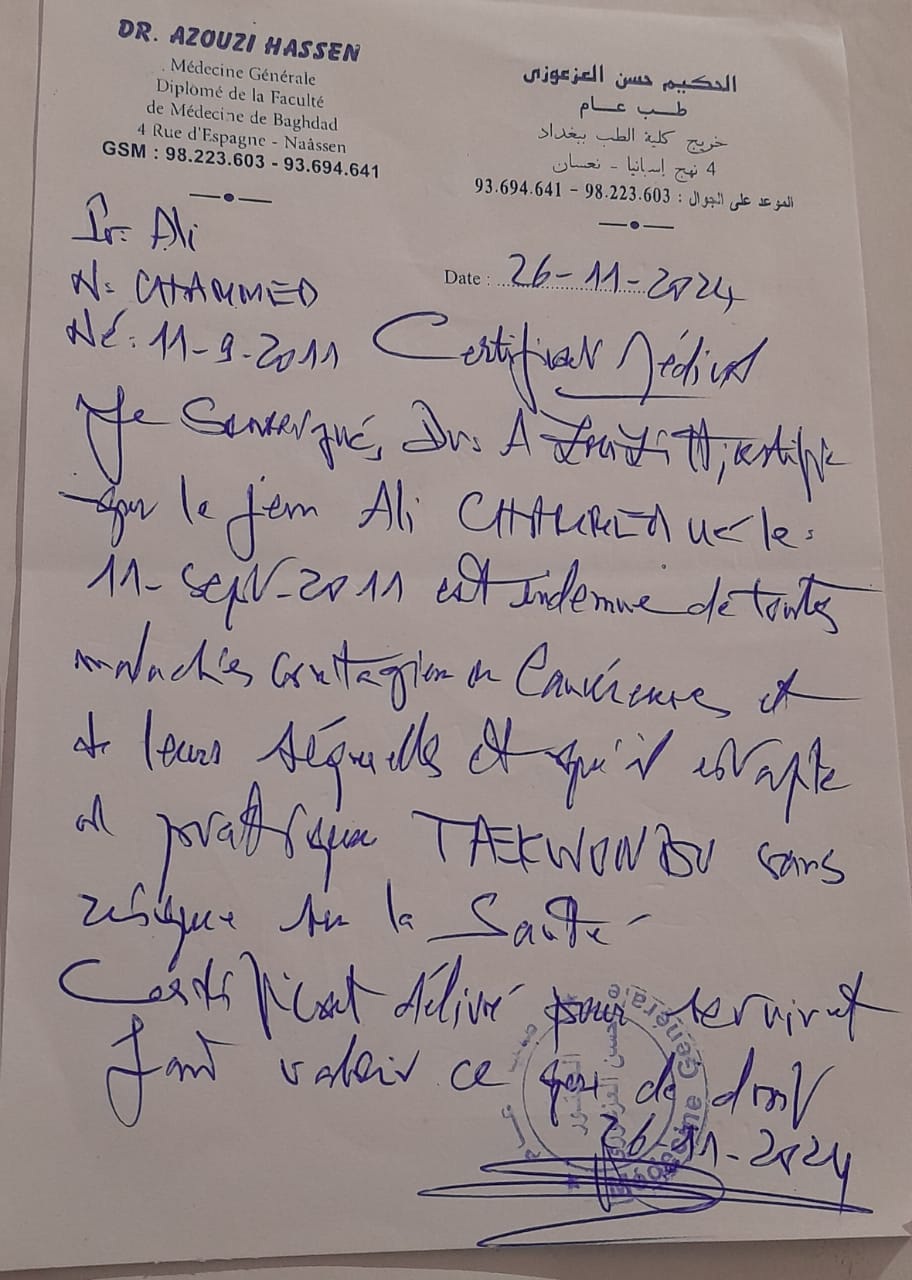 DR. AZOUZI HASSEN
Médecine Générale
Diplomé de la Faculté
de Médecine de Baghdad
4 Rue d'Espagne - Naâssen
GSM : 98.223.603 - 93.694.641
الحكيم حسن العزعوزي
طب عام
خريج كلية الطب ببغداد
4 نهج إسبانيا - نعسان
الموعد على الجوال : 98.223.603 - 93.694.641
Pr: Ali
N: CHAMMED
Né: 11-9-2011
Date : 26-11-2024
Certificat Médical
Je Soussigné, Dr: AZOUZI H, certifie
que le jeun Ali CHAMMED né le:
11-Sept-2011 est indemne de toutes
maladies contagieu ou Cancéreuses et
de leurs séquelles et qu'il est apte
à pratiquer TAEKWONDO sans
risque sur la Santé
Certificat délivré pour servir et
faire valoir ce que de droit
26-11-2024
Médecine Générale